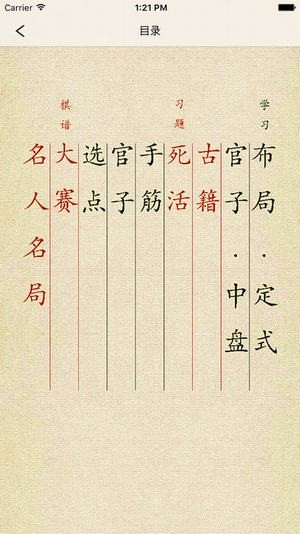 Carrier 1:21 PM
目录
学习
布局·定式
官子·中盘
习题
古籍
死活
手筋
官子
选点
棋谱
大赛
名人名局